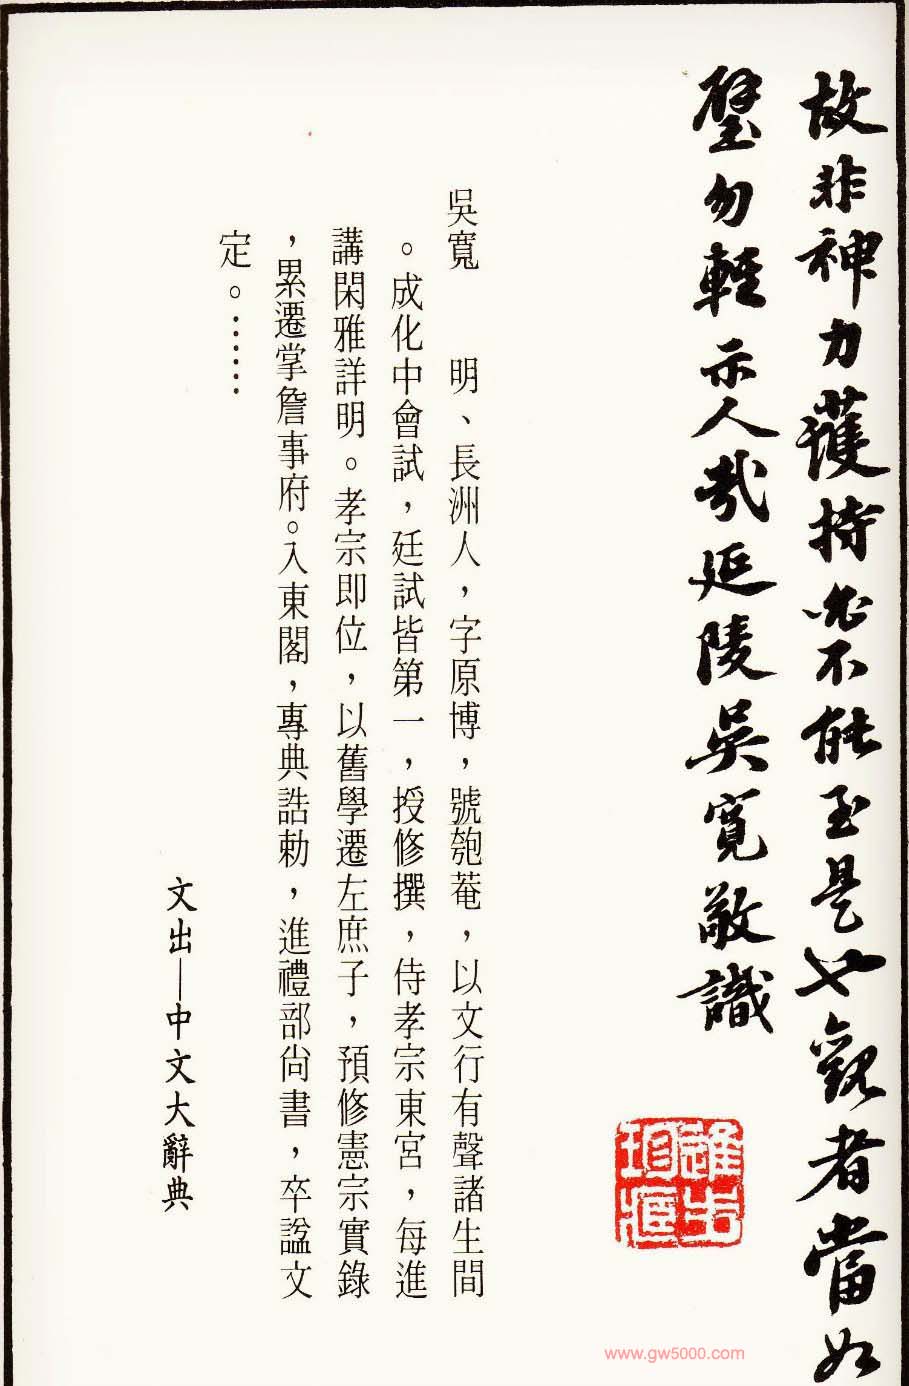 故非神力護持必不能至是也觀者當如
璧勿輕示人哉延陵吳寬敬識
吳寬　明、長洲人，字原博，號匏菴，以文行有聲諸生間
。成化中會試，廷試皆第一，授修撰，侍孝宗東宮，每進
講閑雅詳明。孝宗即位，以舊學遷左庶子，預修憲宗實錄
，累遷掌詹事府。入東閣，專典誥勅，進禮部尚書，卒諡文
定。……
文出—中文大辭典
www.gw5000.com